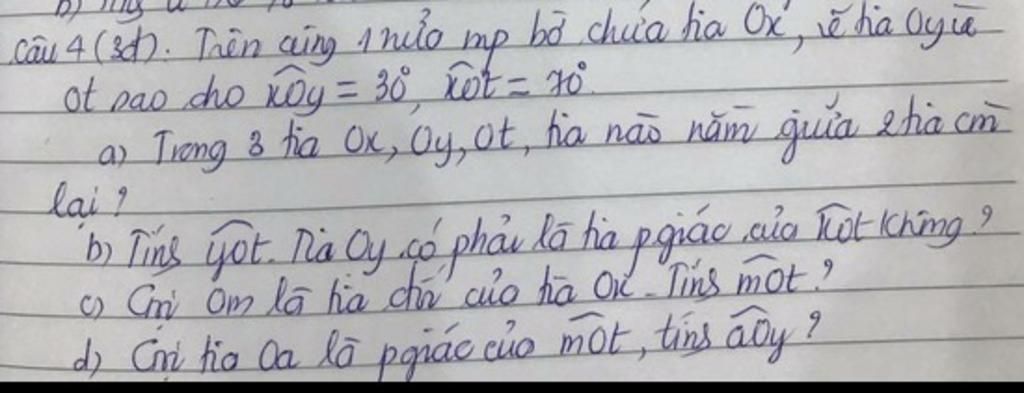 Câu 4 (3đ). Trên cùng 1 nửa mp bờ chứa tia Ox, vẽ tia Oy và
Ot sao cho xÔy = 30°, xÔt = 70°.
a) Trong 3 tia Ox, Oy, Ot, tia nào nằm giữa 2 tia còn
lại ?
b) Tính yÔt. Tia Oy có phải là tia pgiác của xÔt không ?
c) Gọi Om là tia đối của tia Ox. Tính mÔt ?
d) Gọi tia Oa là pgiác của mÔt, tính aÔy ?